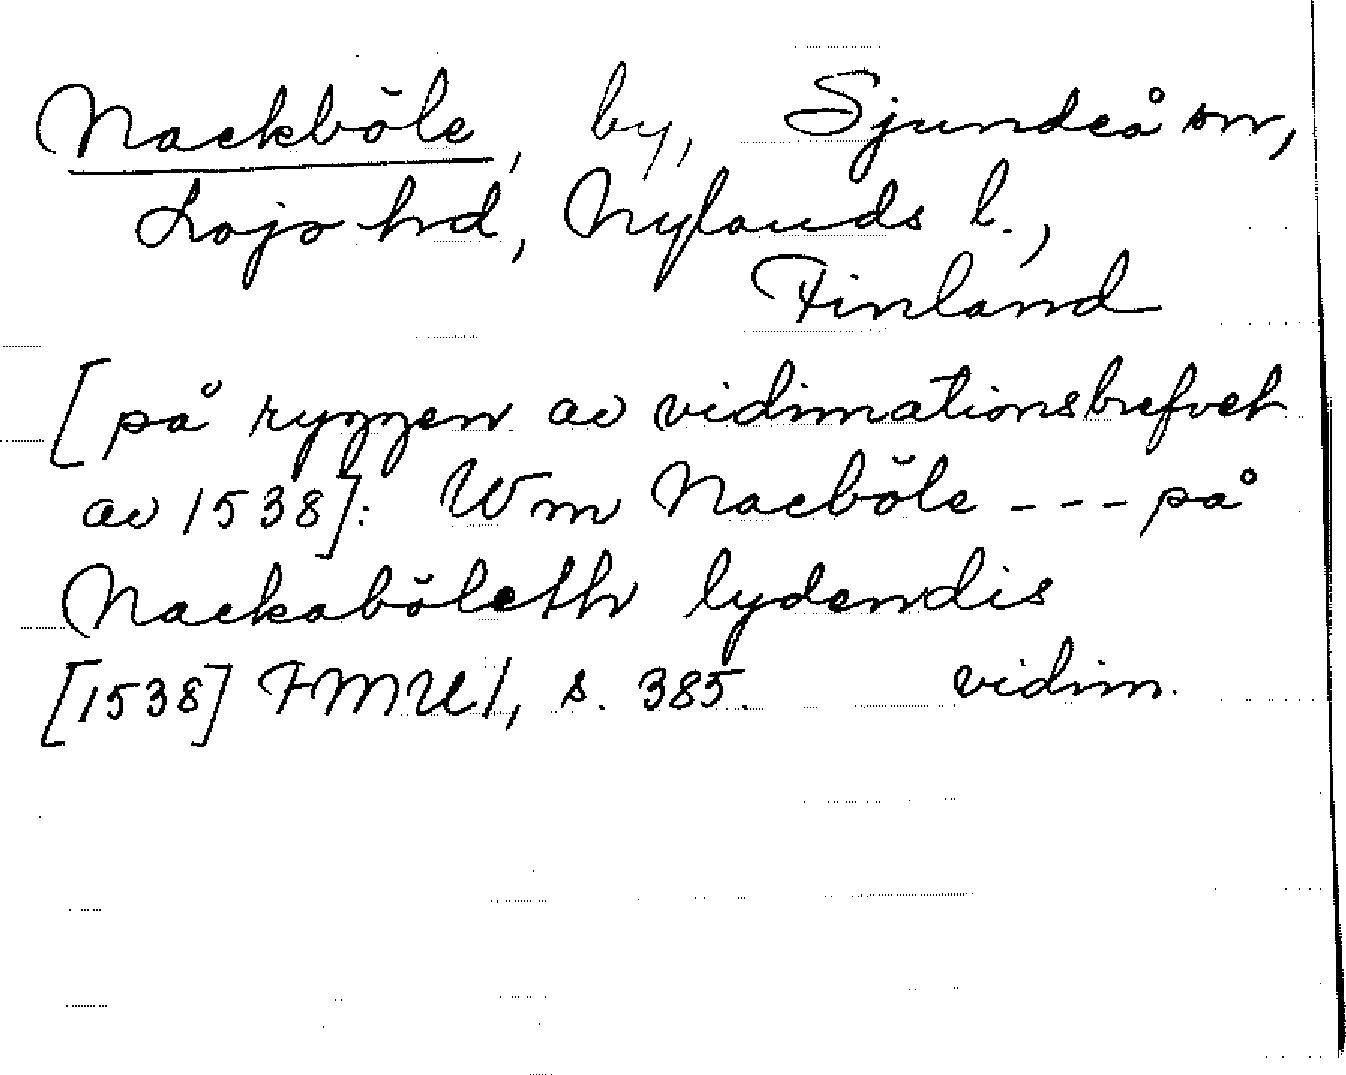 Nackböle, by, Sjundeå sn,
Lojo hd, Nylands l.,
Finland
[på ryggen av vidimationsbrefvet
av 1538]: Wm Nacböle --- på
Nackaböleth lydendis
[1538] FMU 1, s. 385. vidim.